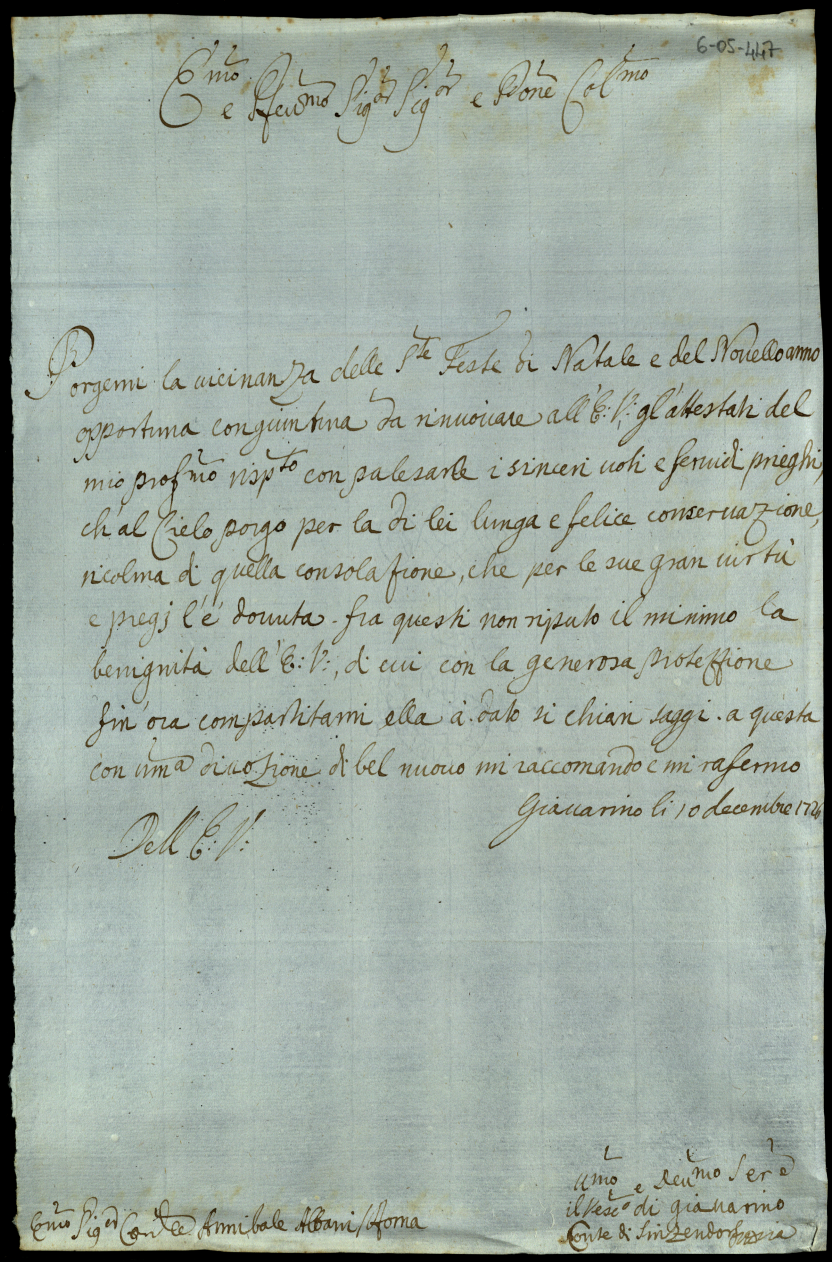 6-05-447
E.mo e Reu.mo Sig.or Sig.or e Prone Col.mo
Porgemi la uicinanza delle S.te Feste di Natale e del Nouello anno
opportuna congiuntura da rinuouare all'E: V: gl'attestati del
mio prof.mo risp.to con palesarle i sinceri uoti e feruidi prieghi,
ch'al Cielo porgo per la di lei lunga e felice conseruazione,
ricolma di quella consolazione, che per le sue gran uirtù
e pregj l'è douuta. fra questi non riputo il minimo la
benignità dell'E: V:, di cui con la generosa protezzione
fin'ora compartitami ella à dato si chiari saggi. a questa
con um.a diuozione di bel nuouo mi raccomando e mi rafermo
Giauarino li 10 decembre 1726
Dell'E: V:
um.o e deu.mo Ser.e
il Vesc.o di giauarino
Conte di Sinzendorf
E.mo Sig.or Card.le Annibale Albani / Roma